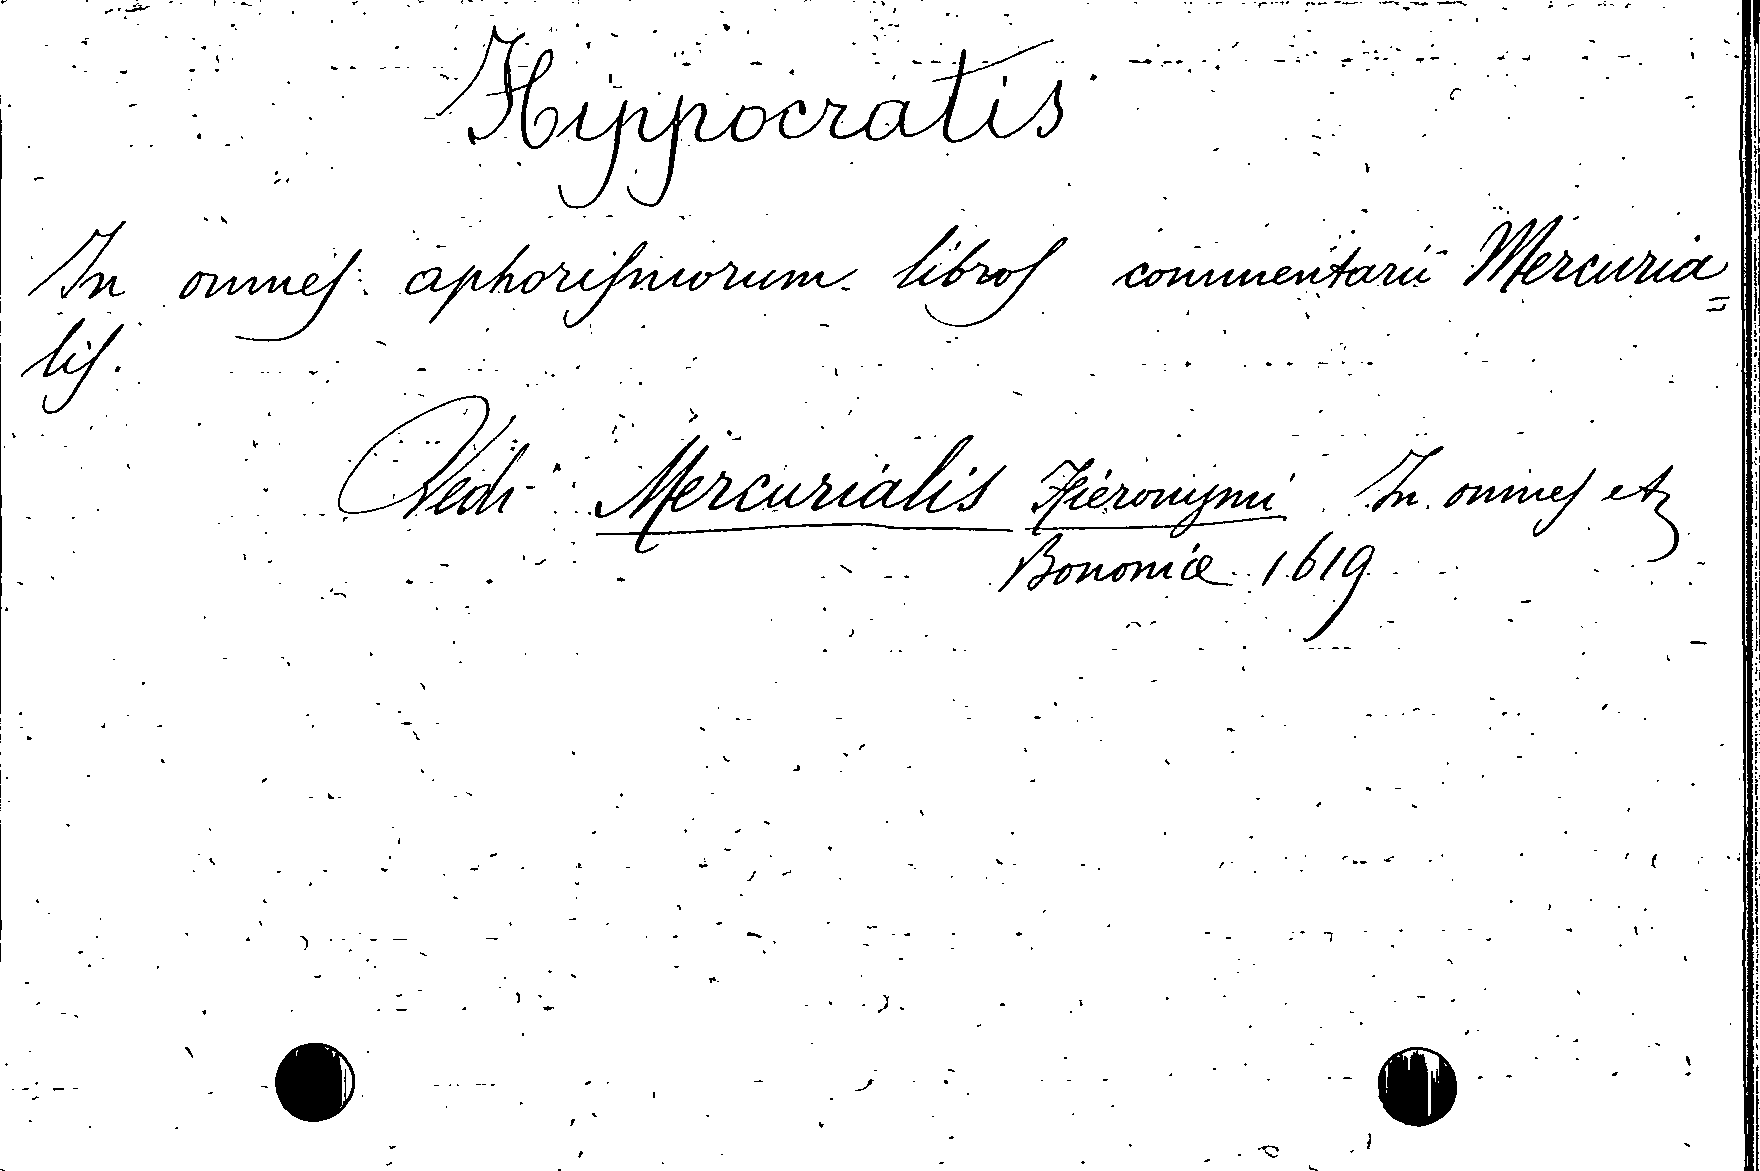 Hippocratis
In omnes aphorismorum libros commentarii Mercuria=
lis.
Vedi Mercurialis Hieronymi In omnes etz
Bononiæ 1619